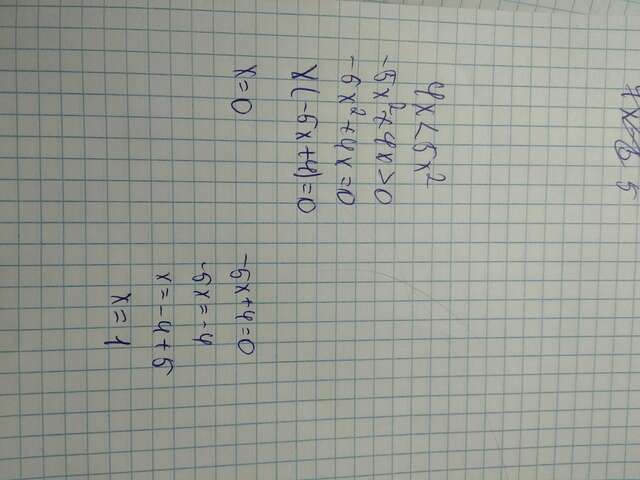 4x<5x²
-5x²+4x>0
-5x²+4x=0
x(-5x+4)=0
x=0 -5x+4=0
-5x=-4
x=-4+5
x=1